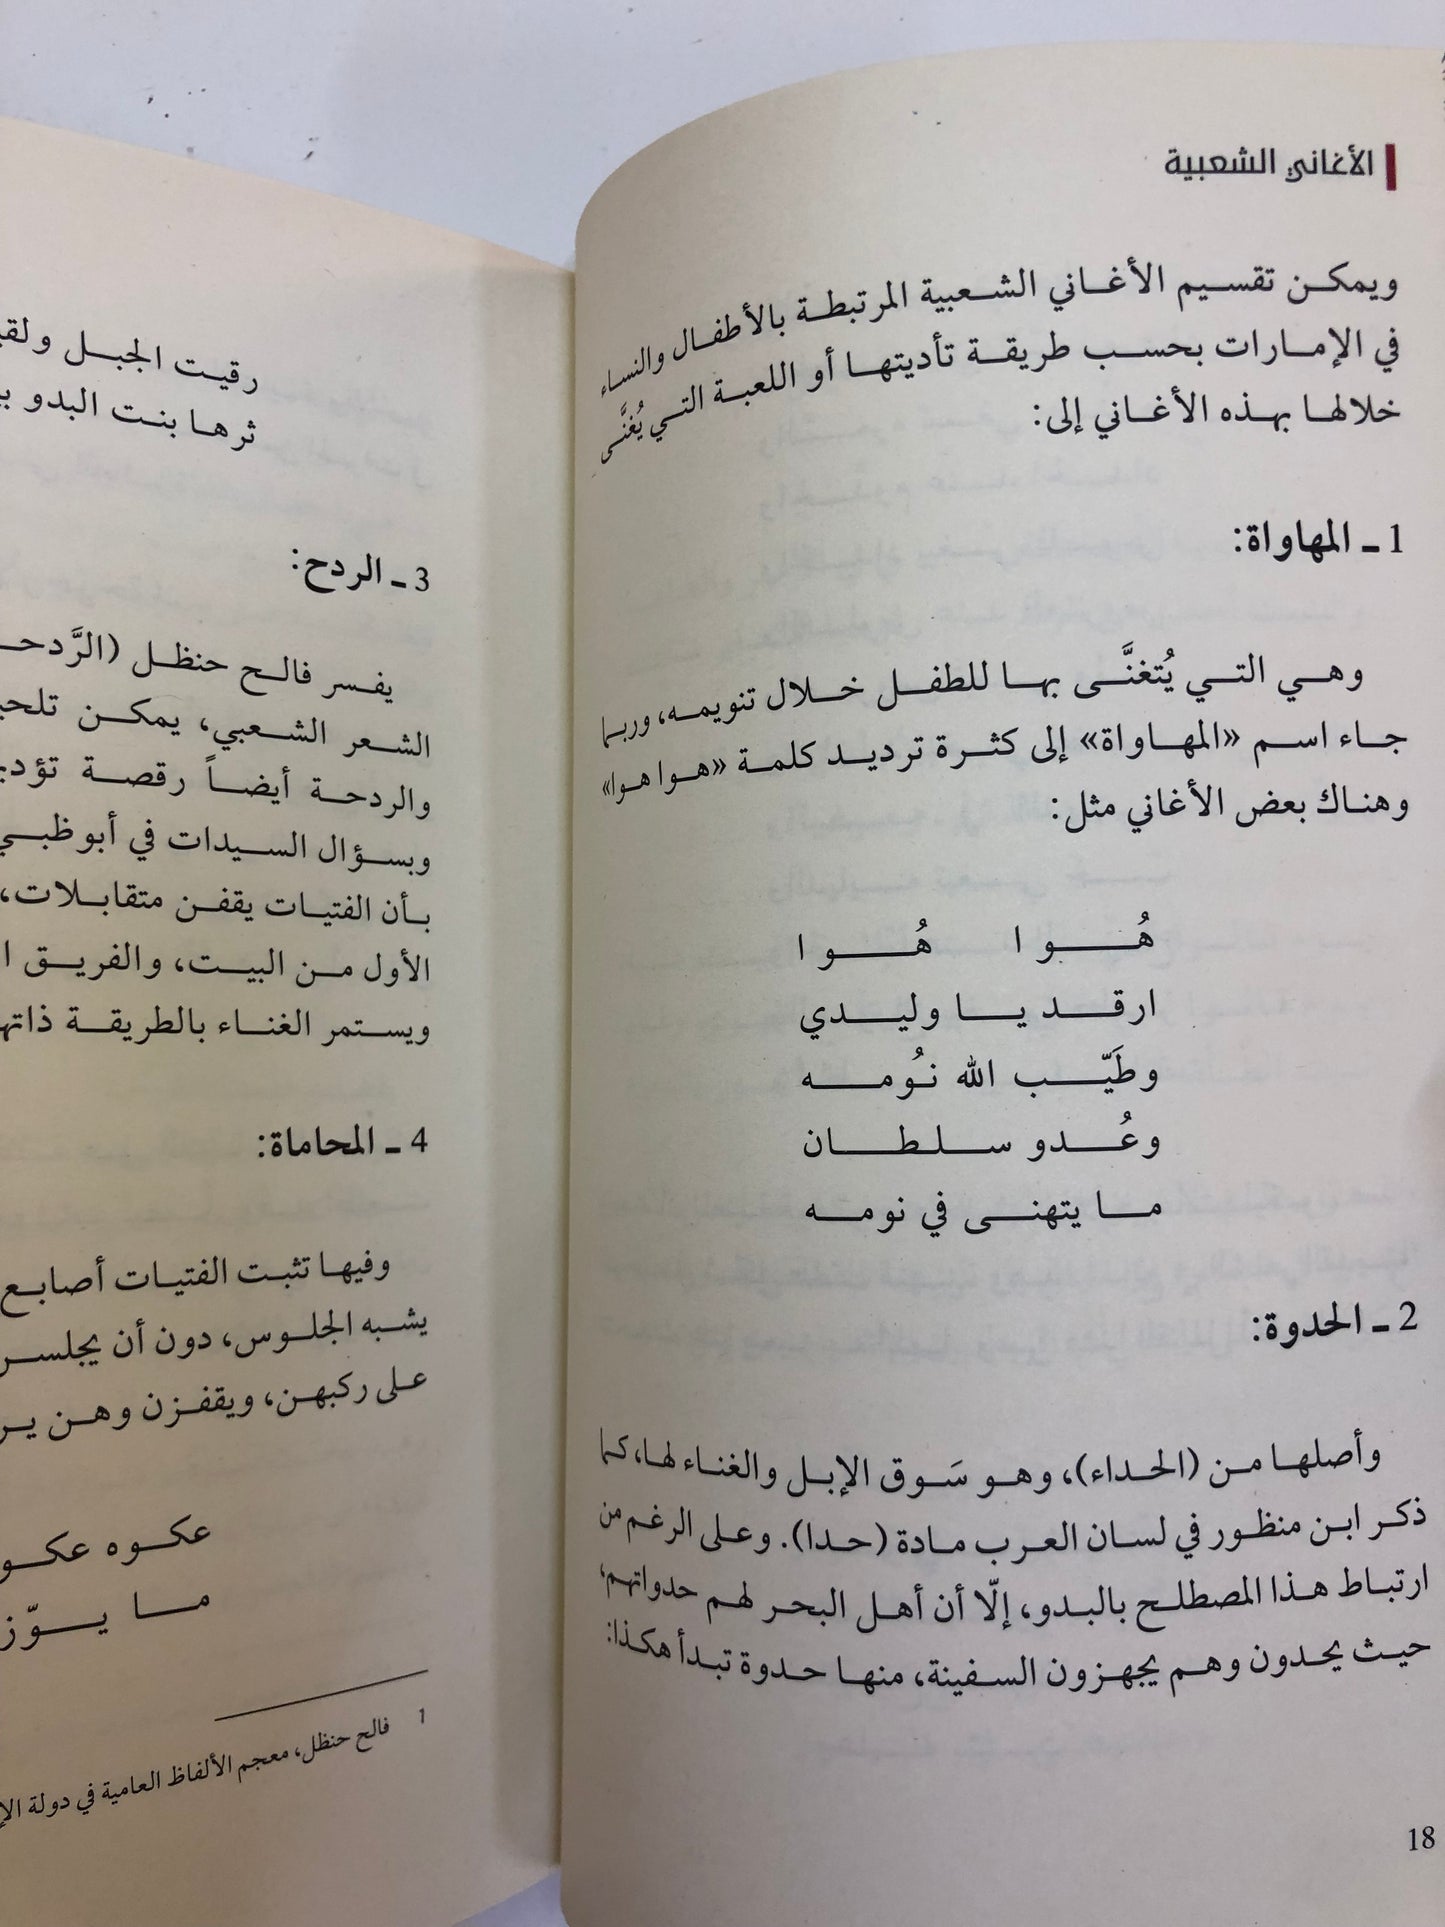 الأغاني الشعبية
ويمكن تقسيم الأغاني الشعبية المرتبطة بالأطفال والنساء
في الإمارات بحسب طريقة تأديتها أو اللعبة التي يُغنَّى
خلالها بهذه الأغاني إلى:
1 ـ المهاواة:
وهي التي يُتغنَّى بها للطفل خلال تنويمه، وربما
جاء اسم «المهاواة» إلى كثرة ترديد كلمة «هوا هوا»
وهناك بعض الأغاني مثل:
هُوا هُوا
ارقد يا وليدي
وطَيّب الله نُومه
وعُدو سلطان
ما يتهنى في نومه
2 ـ الحدوة:
وأصلها من (الحداء)، وهو سَوق الإبل والغناء لها، كما
ذكر ابن منظور في لسان العرب مادة (حدا). وعلى الرغم من
ارتباط هذا المصطلح بالبدو، إلّا أن أهل البحر لهم حدواتهم،
حيث يحدون وهم يجهزون السفينة، منها حدوة تبدأ هكذا:
18
رقيت الجبل
ثرها بنت البدو
3 ـ الردح:
يفسر فالح حنظل
الشعر الشعبي، يمكن
والردحة أيضاً رقصة
وبسؤال السيدات في أبوظبي
بأن الفتيات يقفن متقابلات،
الأول من البيت، والفريق
ويستمر الغناء بالطريقة ذاتها
4 ـ المحاماة:
وفيها تثبت الفتيات أصابع
يشبه الجلوس، دون أن
على ركبهن، ويقفزن وهن
عكوه
ما
1 فالح حنظل، معجم الألفاظ العامية في دولة